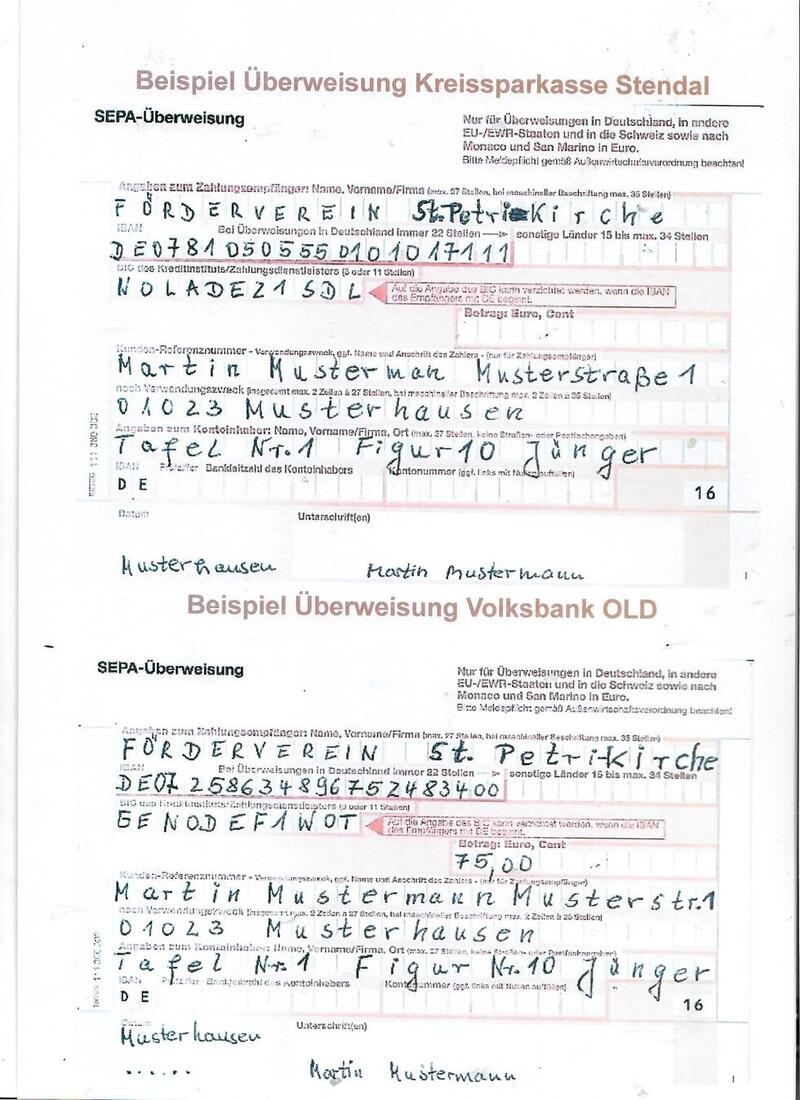 Beispiel Überweisung Kreissparkasse Stendal
SEPA-Überweisung
Nur für Überweisungen in Deutschland, in andere
EU-/EWR-Staaten und in die Schweiz sowie nach
Monaco und San Marino in Euro.
Bitte Meldepflicht gemäß Außenwirtschaftsverordnung beachten!
Angaben zum Zahlungsempfänger: Name, Vorname/Firma (max. 27 Stellen, bei maschineller Beschriftung max. 35 Stellen)
FÖRDERVEREIN St.Petri-Kirche
IBAN Bei Überweisungen in Deutschland immer 22 Stellen sonstige Länder 15 bis max. 34 Stellen
DE07810505550101017111
BIC des Kreditinstituts/Zahlungsdienstleisters (8 oder 11 Stellen)
NOLADE21SDL
Auf die Angabe des BIC kann verzichtet werden, wenn die IBAN
des Empfängers mit DE beginnt.
Betrag: Euro, Cent
Kunden-Referenznummer - Verwendungszweck, ggf. Name und Anschrift des Zahlers - (nur für Zahlungsempfänger)
Martin Musterman Musterstraße 1
noch Verwendungszweck (insgesamt max. 2 Zeilen à 27 Stellen, bei maschineller Beschriftung max. 2 Zeilen à 35 Stellen)
01023 Musterhausen
Angaben zum Kontoinhaber: Name, Vorname/Firma, Ort (max. 27 Stellen, keine Straßen- oder Postfachangaben)
Tafel Nr.1 Figur 10 Jünger
IBAN Prüfziffer Bankleitzahl des Kontoinhabers Kontonummer (ggf. links mit Nullen auffüllen)
DE
16
Datum Unterschrift(en)
Musterhausen Martin Mustermann
Beispiel Überweisung Volksbank OLD
SEPA-Überweisung
Nur für Überweisungen in Deutschland, in andere
EU-/EWR-Staaten und in die Schweiz sowie nach
Monaco und San Marino in Euro.
Bitte Meldepflicht gemäß Außenwirtschaftsverordnung beachten!
Angaben zum Zahlungsempfänger: Name, Vorname/Firma (max. 27 Stellen, bei maschineller Beschriftung max. 35 Stellen)
FÖRDERVEREIN St. Petri-Kirche
IBAN Bei Überweisungen in Deutschland immer 22 Stellen sonstige Länder 15 bis max. 34 Stellen
DE07 258634896752483400
BIC des Kreditinstituts/Zahlungsdienstleisters (8 oder 11 Stellen)
GENODEF1WOT
Auf die Angabe des BIC kann verzichtet werden, wenn die IBAN
des Empfängers mit DE beginnt.
Betrag: Euro, Cent
75,00
Kunden-Referenznummer - Verwendungszweck, ggf. Name und Anschrift des Zahlers - (nur für Zahlungsempfänger)
Martin Mustermann Musterstr.1
noch Verwendungszweck (insgesamt max. 2 Zeilen à 27 Stellen, bei maschineller Beschriftung max. 2 Zeilen à 35 Stellen)
01023 Musterhausen
Angaben zum Kontoinhaber: Name, Vorname/Firma, Ort (max. 27 Stellen, keine Straßen- oder Postfachangaben)
Tafel Nr.1 Figur Nr.10 Jünger
IBAN Prüfziffer Bankleitzahl des Kontoinhabers Kontonummer (ggf. links mit Nullen auffüllen)
DE
16
Datum Unterschrift(en)
Musterhausen
...... Martin Mustermann